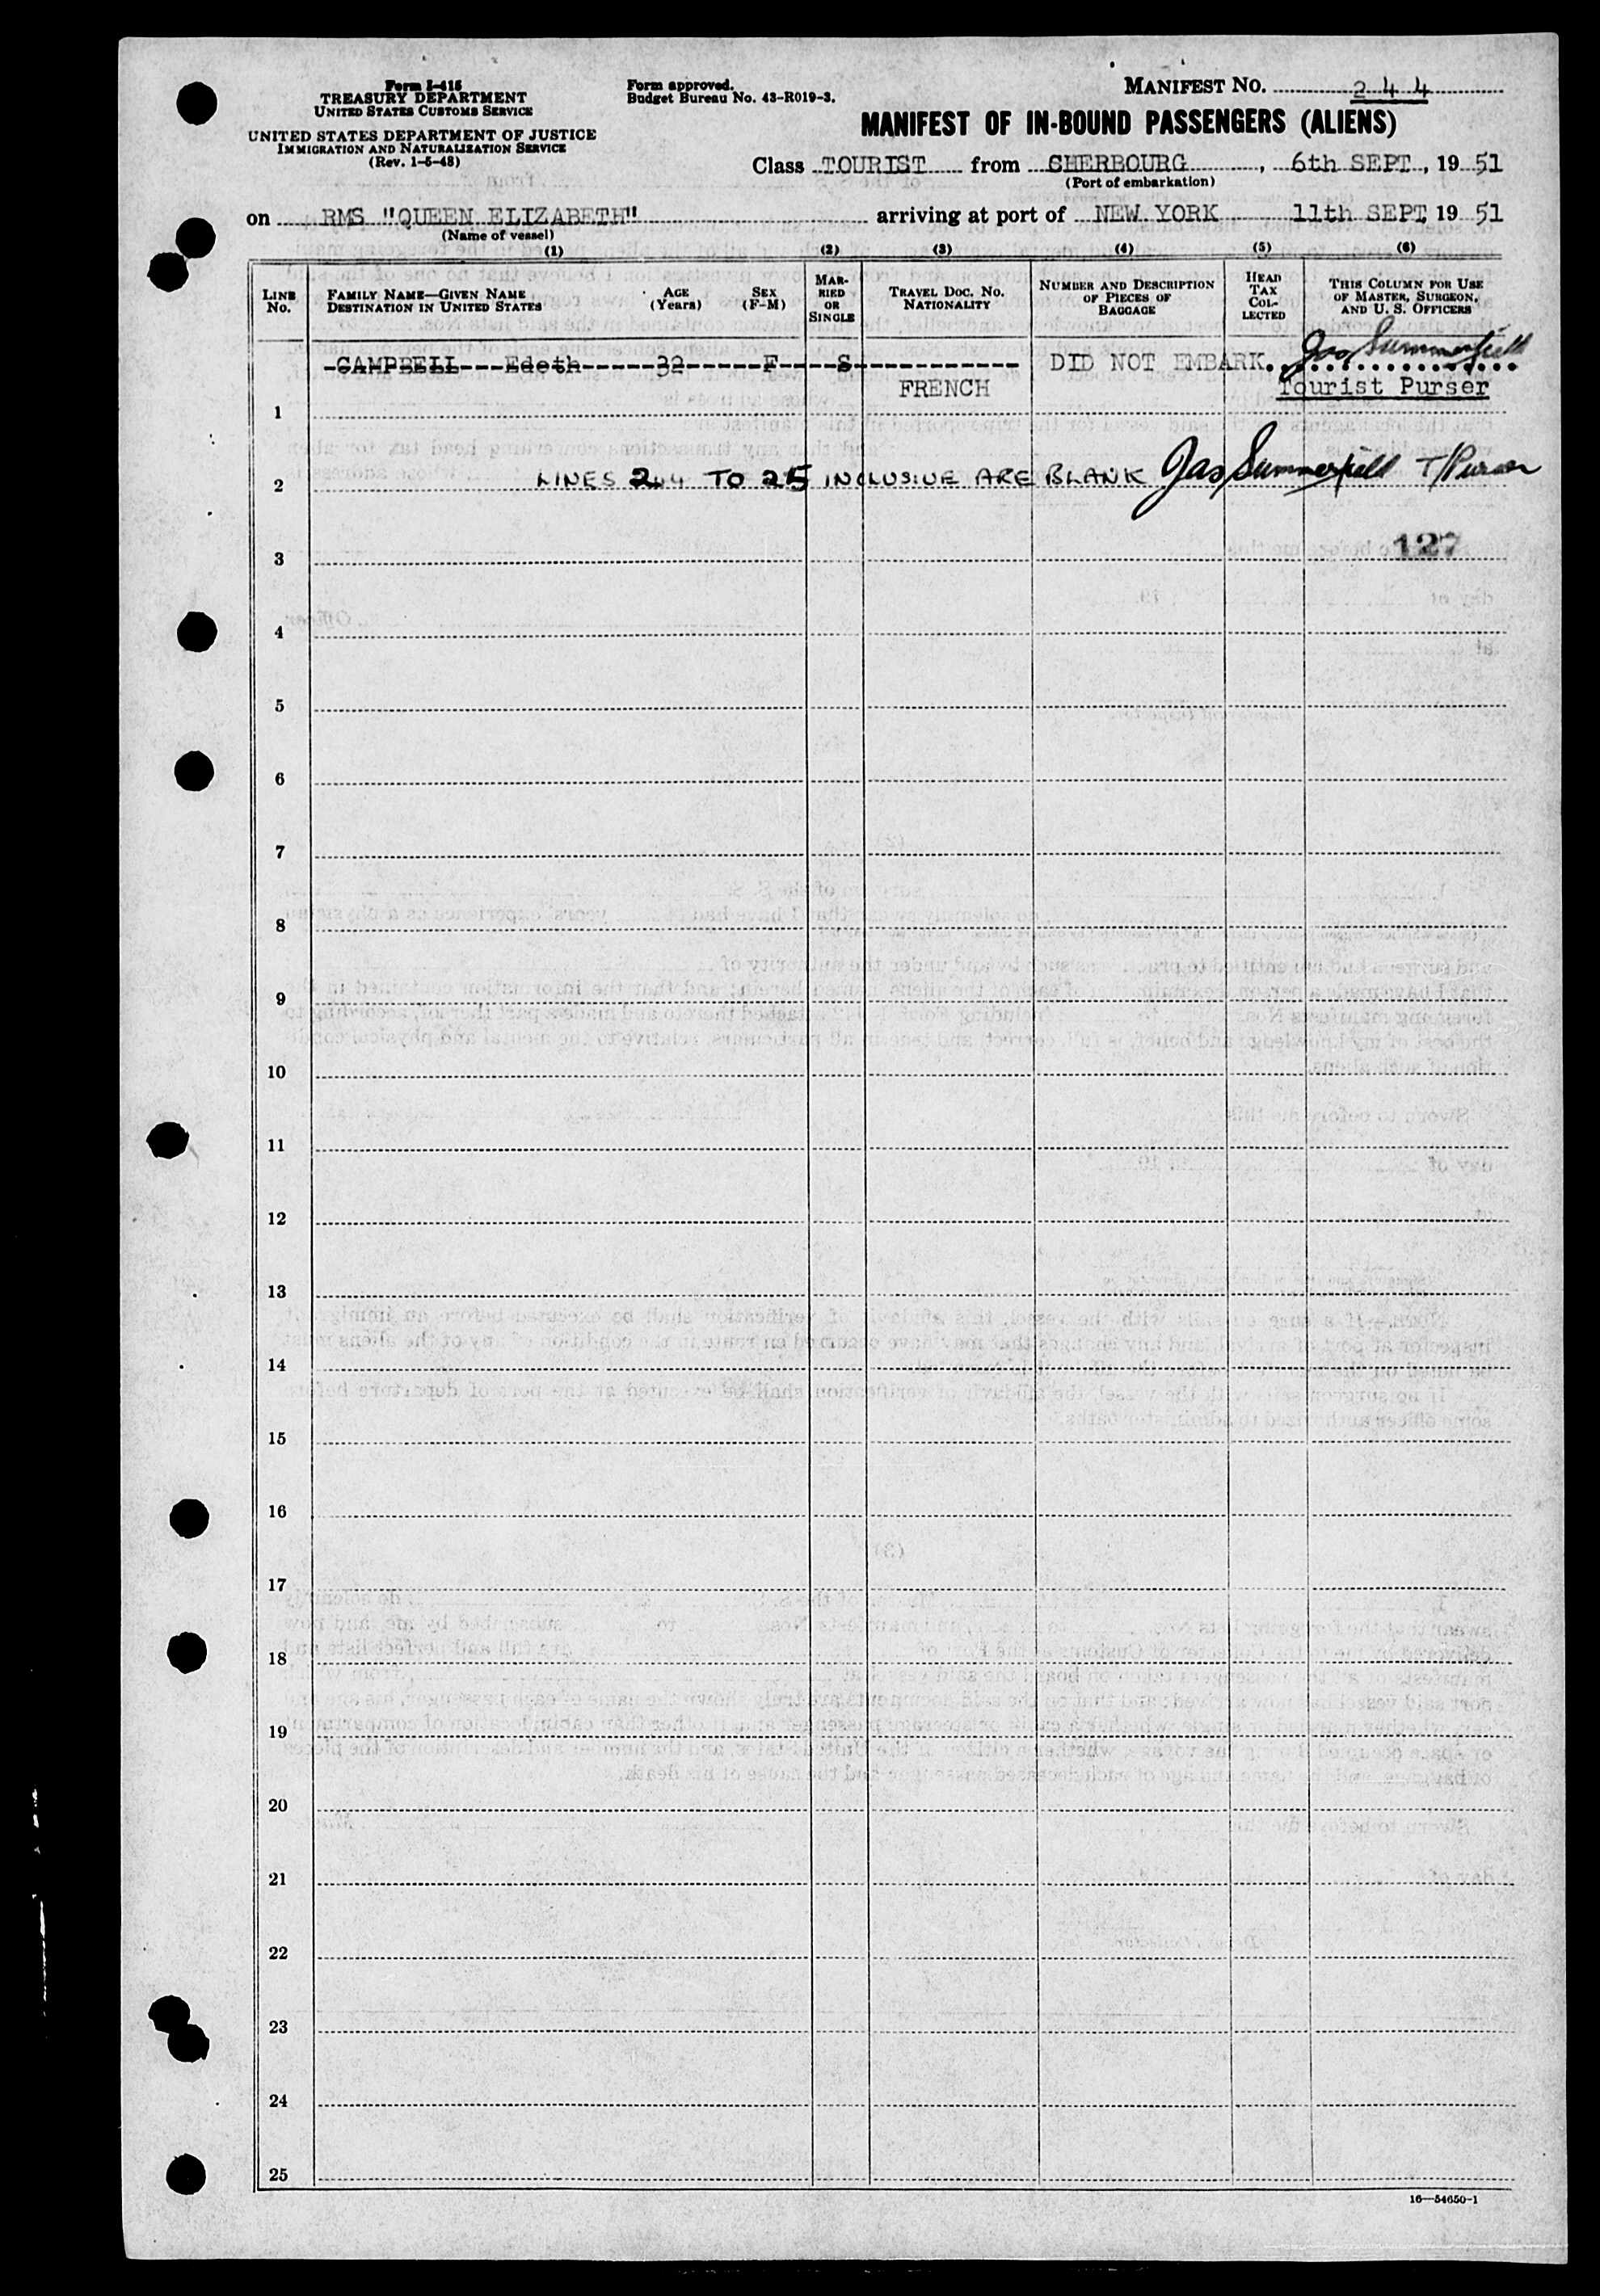 Form I-415
TREASURY DEPARTMENT
UNITED STATES CUSTOMS SERVICE
UNITED STATES DEPARTMENT OF JUSTICE
IMMIGRATION AND NATURALIZATION SERVICE
(Rev. 1-5-48)
Form approved.
Budget Bureau No. 43-R019-3.
MANIFEST NO. 244
MANIFEST OF IN-BOUND PASSENGERS (ALIENS)
Class TOURIST from CHERBOURG, 6th SEPT, 19 51
(Port of embarkation)
on RMS "QUEEN ELIZABETH" arriving at port of NEW YORK 11th SEPT 19 51
(Name of vessel)
(1) (2) (3) (4) (5) (6)
LINE No.
FAMILY NAME—GIVEN NAME
DESTINATION IN UNITED STATES
AGE (Years)
SEX (F-M)
MARRIED OR SINGLE
TRAVEL DOC. NO.
NATIONALITY
NUMBER AND DESCRIPTION OF PIECES OF BAGGAGE
HEAD TAX COLLECTED
THIS COLUMN FOR USE OF MASTER, SURGEON, AND U. S. OFFICERS
-CAMPBELL---Edeth-----32-----F----S------------ DID NOT EMBARK. Jas Summerfield
FRENCH Tourist Purser
1
2 LINES 2 TO 25 INCLUSIVE ARE BLANK Jas Summerfield T/Purser
127
3
4
5
6
7
8
9
10
11
12
13
14
15
16
17
18
19
20
21
22
23
24
25
16—54650-1